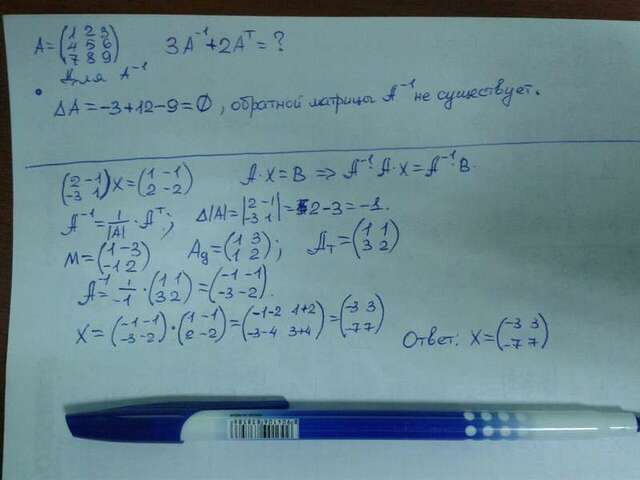 A = (1 2 3 / 4 5 6 / 7 8 9) 3A⁻¹+2Aᵀ=?
Для A⁻¹
• ΔA = -3+12-9=0, обратной матрицы A⁻¹ не существует.
(2 -1 / -3 1) X = (1 -1 / 2 -2) A·X=B ⇒ A⁻¹·A·X=A⁻¹·B.
A⁻¹ = 1/|A| · Aᵀ; Δ|A| = |2 -1 / -3 1| = 2-3 = -1.
M = (1 -3 / -1 2) Aд = (1 3 / 1 2); Aт = (1 1 / 3 2)
A⁻¹ 1/-1 · (1 1 / 3 2) = (-1 -1 / -3 -2).
X = (-1 -1 / -3 -2) · (1 -1 / 2 -2) = (-1-2 1+2 / -3-4 3+4) = (-3 3 / -7 7)
Ответ: X = (-3 3 / -7 7)